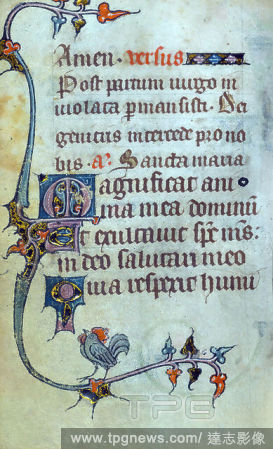 Amen. versus
Post partum uirgo in
uiolata p̄mansisti. Dei
genitrix intercede pro no
bis. a. Sancta maria
Magnificat ani
ma mea dominū
Et exultauit sp̄c m̄s:
in deo salutari meo
Quia respexit humi
TPG
www.tpgnews.com/ 達志影像